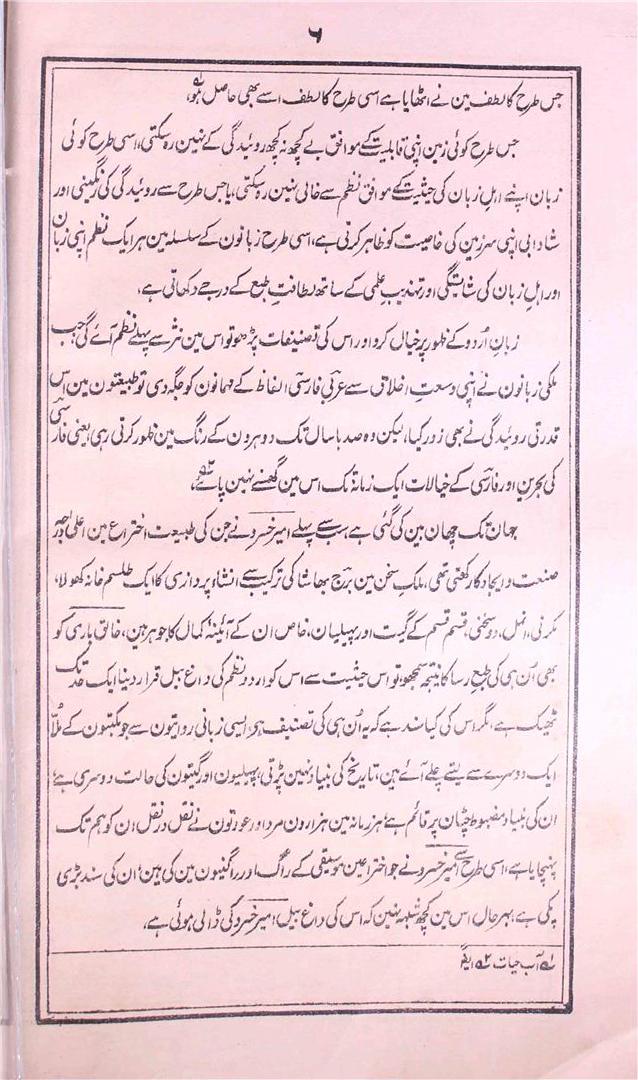 ۶
جس طرح کا لطف مین نے اٹھایا ہے اسی طرح کا لطف اسے بھی حاصل ہو،
جس طرح کوئی زمین اپنی قابلیت کے موافق بے کچھ نہ کچھ روئیدگی کے نہین رہ سکتی، اسی طرح کوئی
زبان اپنے اہلِ زبان کی حیثیت کے موافق نظم سے خالی نہین رہ سکتی، یا جس طرح سے روئیدگی کی رنگینی اور
شادابی اپنی سرزمین کی خاصیت کو ظاہر کرتی ہے، اسی طرح زبانون کے سلسلہ مین ہر ایک نظم اپنی زبان
اور اہلِ زبان کی شایستگی اور تہذیب علمی کے ساتھ لطافتِ طبع کے درجے دکھاتی ہے،
زبانِ اُردو کے ظہور پر خیال کرو اور اس کی تصنیفات پڑھو تو اس مین نثر سے پہلے نظم آئے گی، جب
ملکی زبانون نے اپنی وسعتِ اخلاق سے عربی فارسی الفاظ کے مہمانون کو جگہ دی تو طبیعتون مین اس
قدرتی روئیدگی نے بھی زور کیا، لیکن وہ صدہا سال تک دوہرون کے رنگ مین ظہور کرتی رہی، یعنی فارسی
کی بحرین اور فارسی کے خیالات ایک زمانہ تک اس مین گھسنے نہین پائے،
جہان تک چھان بین کی گئی ہے، سب سے پہلے امیر خسرو نے جن کی طبیعت اختراع مین اعلیٰ درجہ
صنعت و ایجاد کا رکھتی تھی، ملکِ سخن مین برج بھاشا کی ترکیب سے انشا پردازی کا ایک طلسم خانہ کھولا،
مکرنی، انمل، دوسخنی، قسم قسم کے گیت اور پہیلیان، خاص ان کے آئینۂ کمال کا جوہر ہین، خالق باری کو
بھی اُن ہی کی طبع رسا کا نتیجہ سمجھو، تو اس حیثیت سے اس کو اردو نظم کی داغ بیل قرار دینا ایک حد تک
ٹھیک ہے، مگر اس کی کیا سند ہے کہ یہ اُن ہی کی تصنیف ہی، ایسی زبانی روایتون سے جو مکتبون کے ملّا
ایک دوسرے سے لیتے چلے آئے ہین، تاریخ کی بنیاد نہین پڑتی، پہیلیون اور گیتون کی حالت دوسری ہے،
ان کی بنیاد مضبوط چٹان پر قائم ہے، ہر زمانہ مین ہزارون مرد اور عورتون نے نقل در نقل ان کو ہم تک
پہنچایا ہے، اسی طرح سے امیر خسرو نے جو اختراعین موسیقی کے راگ اور راگنیون مین کی ہین، ان کی سند بڑی
پکی ہے، بہرحال اس مین کچھ شبہہ نہین کہ اس کی داغ بیل امیر خسرو کی ڈالی ہوئی ہے،
۱ آب حیات ۲ ایضاً